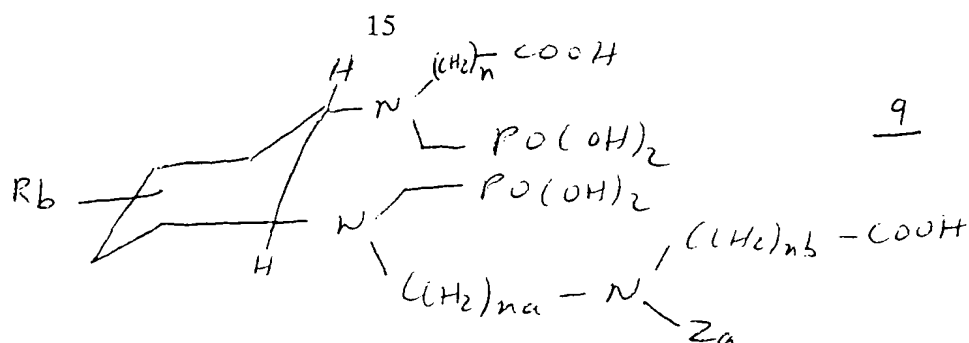 15
H
(CH2)n - COOH
N
9
PO(OH)2
Rb
PO(OH)2
N
(CH2)nb - COOH
H
(CH2)na - N
Za